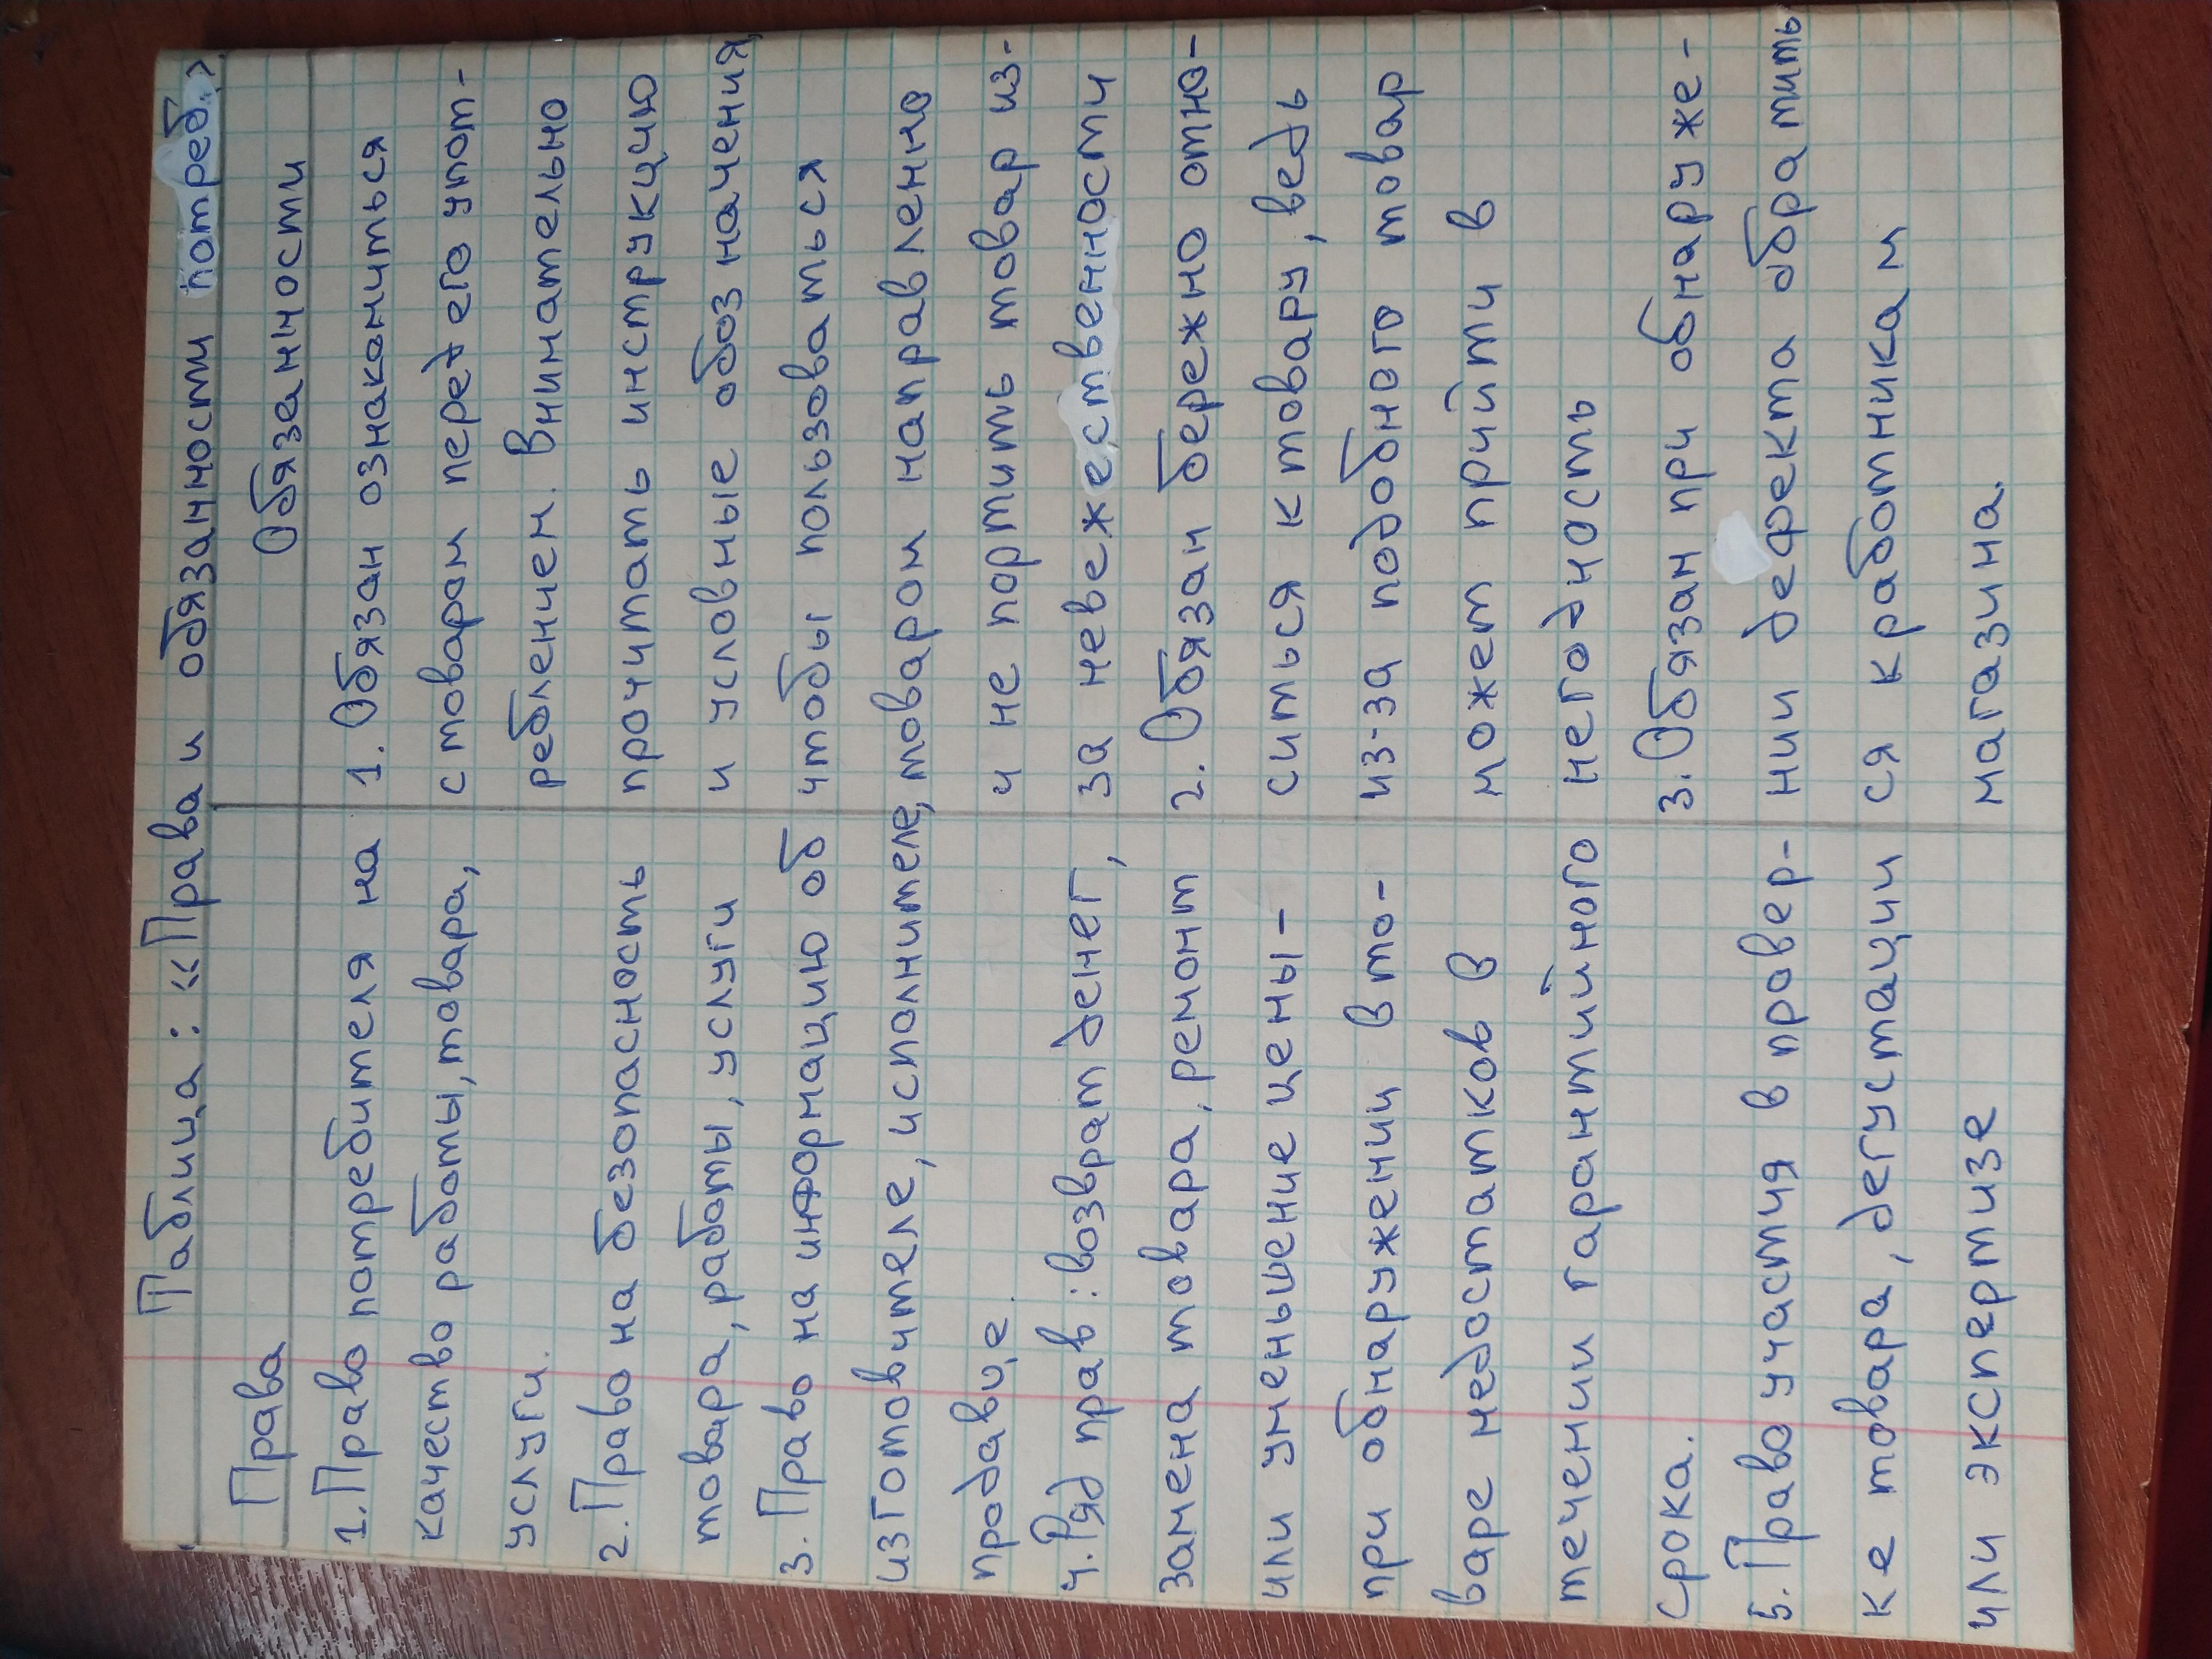 Таблица: «Права и обязанности потреб.»
Права
1. Право потребителя на
качество работы, товара,
услуги.
2. Право на безопасность
товара, работы, услуги
3. Право на информацию об
изготовителе, исполнителе,
продавце.
4. Ряд прав: возврат денег,
замена товара, ремонт
или уменьшение цены -
при обнаружении в то-
варе недостатков в
течении гарантийного
срока.
5. Право участия в провер-
ке товара, дегустации
или экспертизе
Обязанности
1. Обязан ознакомиться
с товаром перед его упот-
реблением. Внимательно
прочитать инструкцию
и условные обозначения,
чтобы пользоваться
товаром направленно
и не портить товар из-
за невежественности
2. Обязан бережно отно-
ситься к товару, ведь
из-за подобного товар
может прийти в
негодность
3. Обязан при обнаруже-
нии дефекта обратить
ся к работникам
магазина.